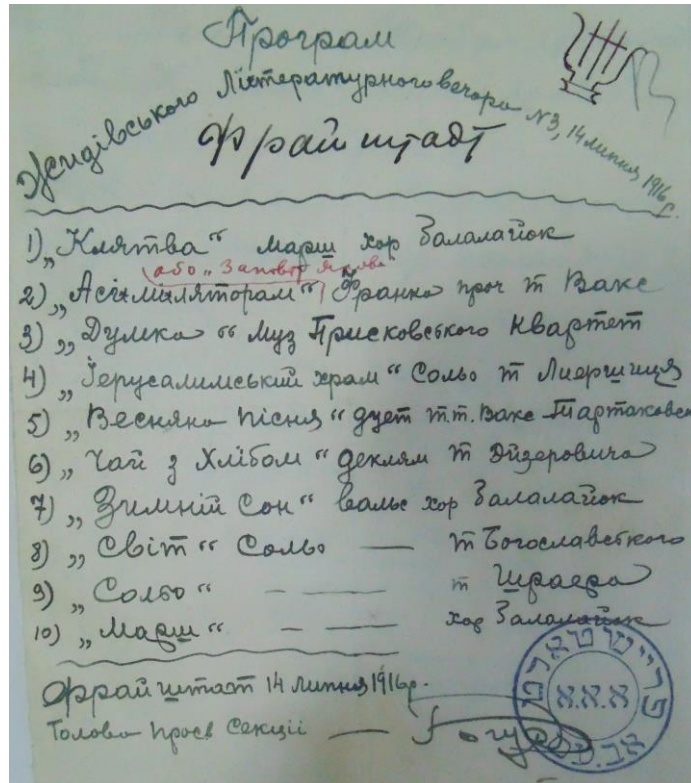 Програм
Жидівського Літературного вечора №3, 14 липня, 1916 р.
Фрайштадт
1) „Клятва“ марш хор Балалайок
або „Заповіт Якова“
2) „Асіміляторам“ Франка проч т Вакс
3) „Думка“ муз Присковського Квартет
4) „Їерусалимський храм“ Сольо т
5) „Весняна Пісня“ дует т.т. Вакс Тартаковск
6) „Чай з Хлібом“ деклям т Айзеровича
7) „Зимній Сон“ вальс хор Балалайок
8) „Світ“ Сольо — т Богославського
9) „Сольо“ — — т Шраера
10) „Марш“ — — хор Балалайок
Фрайштат 14 Липня 1916 р.
Голова просв Секції —
פריישטארט
א.א.א.